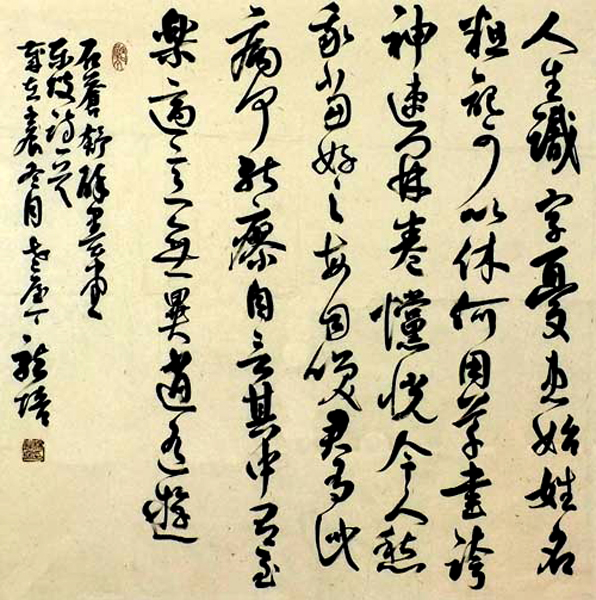 人生識字憂患始姓名
粗記可以休何用草書誇
神速開卷戃怳令人愁
我嘗好之每自笑君有此
病何能瘳自言其中有至
樂適意無異逍遙遊
石蒼舒醉墨堂
東坡詩一首
歲在壬辰冬月